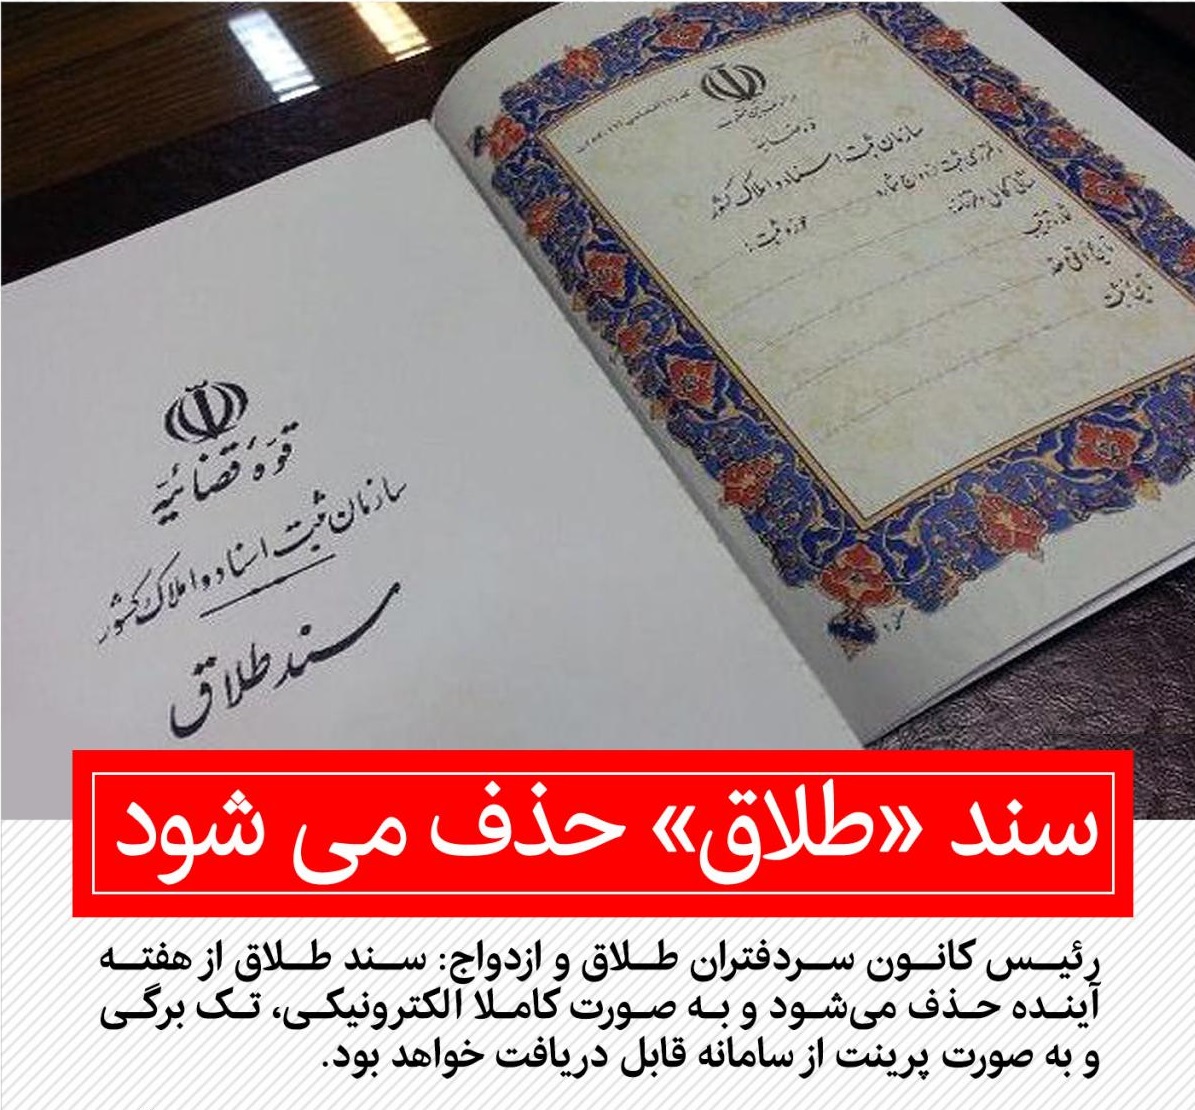 قوه قضائیه
سازمان ثبت اسناد و املاک کشور
حوزه ثبت:
شماره ترتیب
تاریخ وقوع عقد
تاریخ ثبت
قوّهٔ قضائیّه
سازمان ثبت اسناد و املاک کشور
سند طلاق
سند «طلاق» حذف می شود
رئیس کانون سردفتران طلاق و ازدواج: سند طلاق از هفته
آینده حذف می‌شود و به صورت کاملا الکترونیکی، تک برگی
و به صورت پرینت از سامانه قابل دریافت خواهد بود.